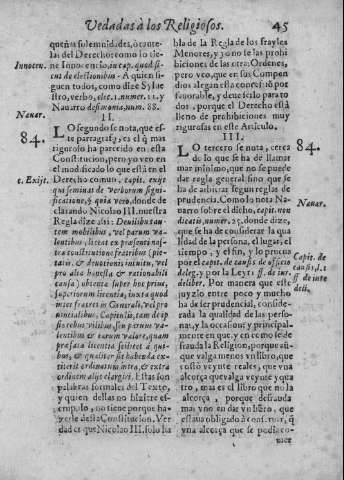 Vedadas à los Religiosos. 45
queñas solemnidades, ò caute-
las del Derecho: como lo tie-
ne Innocencio, in cap. quod si-
cut de electionibus. A quien si-
guen todos, como dize Sylue
stro, verbo, elec. 1. num. 12. y
Nauarro de simonia, num. 88.
Innocen.
Nauar.
II.
84.
LO segundo se nota, que es-
te parragraf3, es el q̃ mas
riguroso ha parecido en esta
Constitucion, pero yo veo en
el modificado lo que està en el
Derecho comun, capit. exijt
qui seminat de verborum signi-
ficatione, § quia verò, donde de-
clarando Nicolao III. nuestra
Regla dize, assi: De vilibus au-
tem mobilibus, vel parum va-
lentibus, liceat ex præsenti nos-
tra constitutione fratribus (pie-
tatis, & deuotionis intuitu, vel
pro alia honesta, & rationabili
causa) obtenta super hoc prius,
superiorum licentia, iuxta quod
inter fratres in Generali, vel pro
uincialibus, Capitulis, tam de ip
sis rebus vilibus seu parum va-
lentibus & earum valore, quam
præfata licentia scilicet à qui-
bus, & qualiter sit habenda ex-
titerit ordinatum intra, & extra
ordinem alijs largiri. Estas son
palabras formales del Texto,
y quien dellas no hiziere es-
crupulo, no tiene porque ha-
zerle desta Constitucion. Ver
dad es que Nicolao III. solo ha
c. Exijt.
bla de la Regla de los frayles
Menores, y yo no se las prohi
biciones de las otras Ordenes,
pero veo, que en sus Compen
dios alegan esta concession pò
fauorable, y deuesseles para to
dos, porque el Derecho està
lleno de prohibiciones muy
rigurosas en este Articulo.
III.
84.
LO tercero se nota, cerca
de lo que se ha de llamar
mas minimo, que no se puede
dar regla general sino que se
ha de arbitrar segun reglas de
prudencia. Como lo nota Na-
uarro sobre el dicho, capit. non
dicatis, numer. 27. donde dize,
que se ha de considerar la qua
lidad de la persona, el lugar, el
tiempo, y el fin, y lo prueua
por el capit. de causis de officio
deleg. y por la Ley 1. ff. de iur.
deliber. Por manera que este
juyzio entre poco y mucho
ha de ser prudencial, conside-
rada la qualidad de las perso-
nas, y la ocasion: y principal-
mente en que, y en como se de
frauda la Religion, porque aũ-
que valga menos vn libro, que
costò veynte reales, que vna
alcorça que valga veynte y qua
tro, mas es el libro que no la
alcorça, porque defrauda
mas vno en dar vn libro, que
estaua obligado à conseruar, q̃
vna alcorça que se podia co-
mer
Nauar.
Capit. de
causis, l. 1.
ff. de iure
deli.